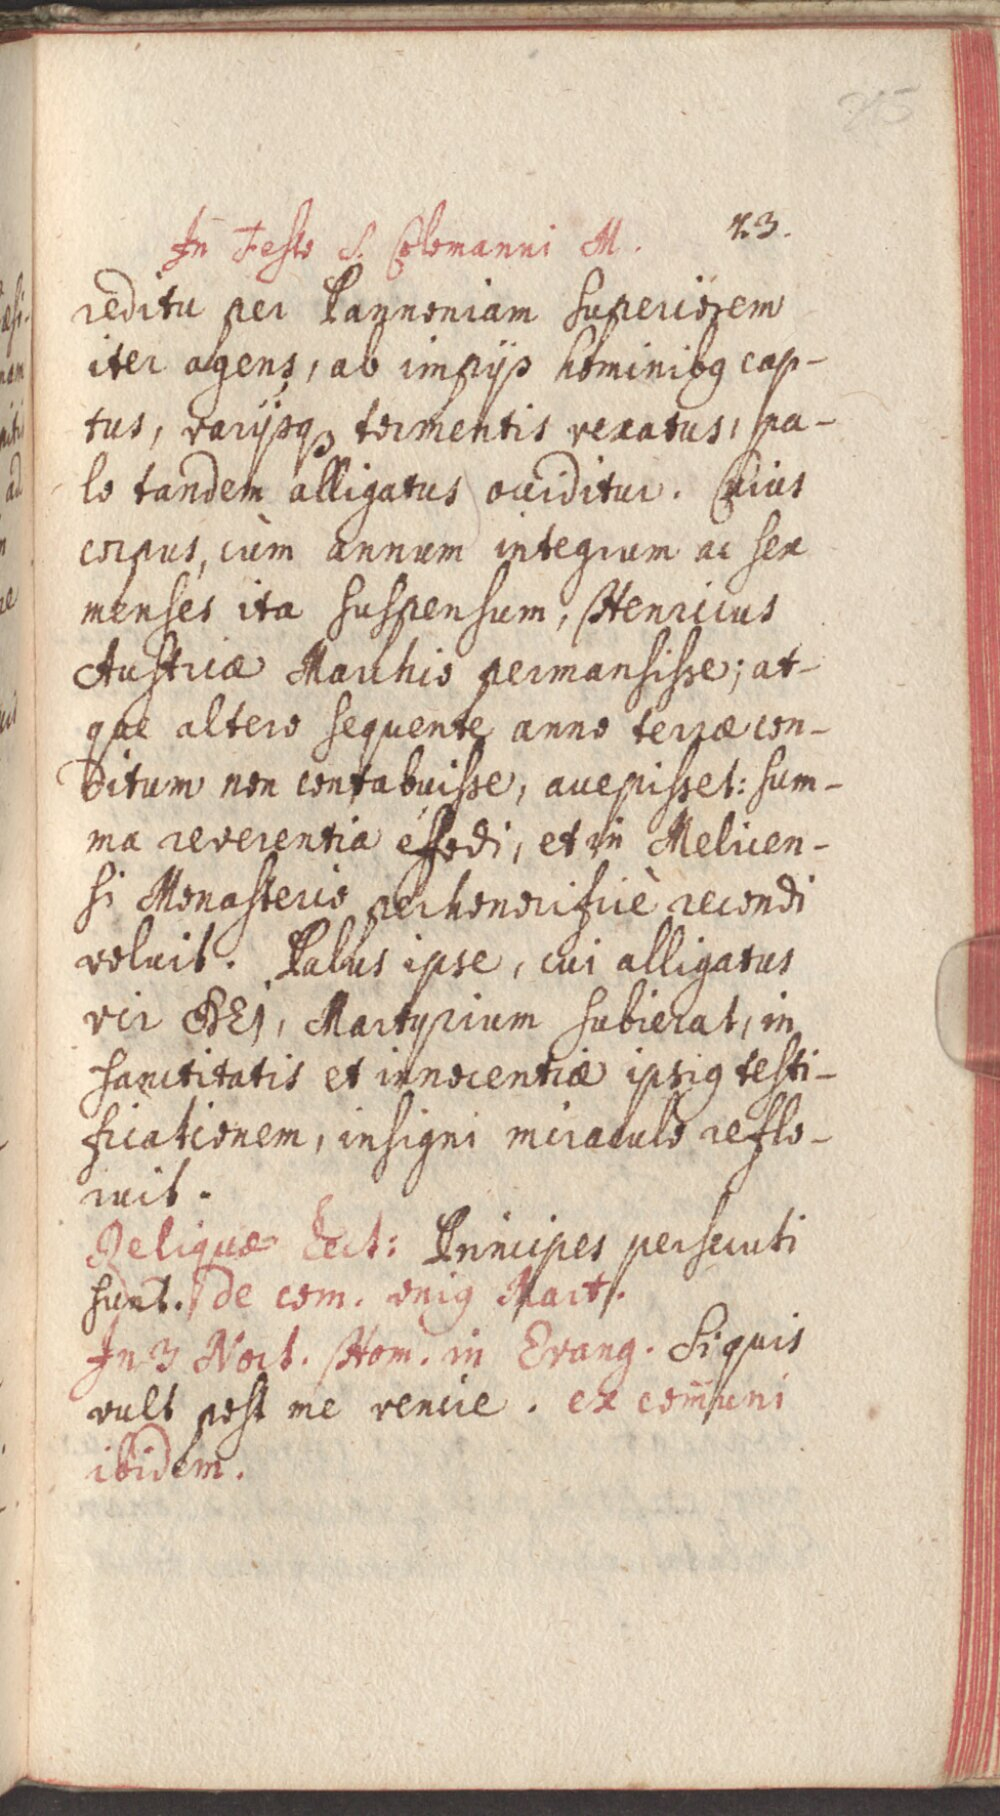 In Festo S. Colomanni M. 23.
reditu per Pannoniam superiorem
iter agens, ab impijs hominibꝰ cap-
tus, varijsqꝫ tormentis vexatus, pa-
lo tandem alligatus occiditur. Cuius
corpus, cùm annum integrum ac sex
menses ita suspensum, Henricus
Austriæ Marchio permansisse; at-
que altero sequente anno terræ con-
ditum non contabuisse, accepisset: sum-
ma reverentia effodi, et in Melicen-
si Monasterio perhonorificè recondi
voluit. Palus ipse, cui alligatus
vir DEI, Martyrium subierat, in
sanctitatis et innocentiæ ipsiꝰ testi-
ficationem, insigni miraculo reflo-
ruit.
Reliquæ Lect: Principes persecuti
sunt. de com. uniꝰ Mart.
In 3 Noct. Hom. in Evang. Siquis
vult post me venire. ex com̃uni
ibidem.